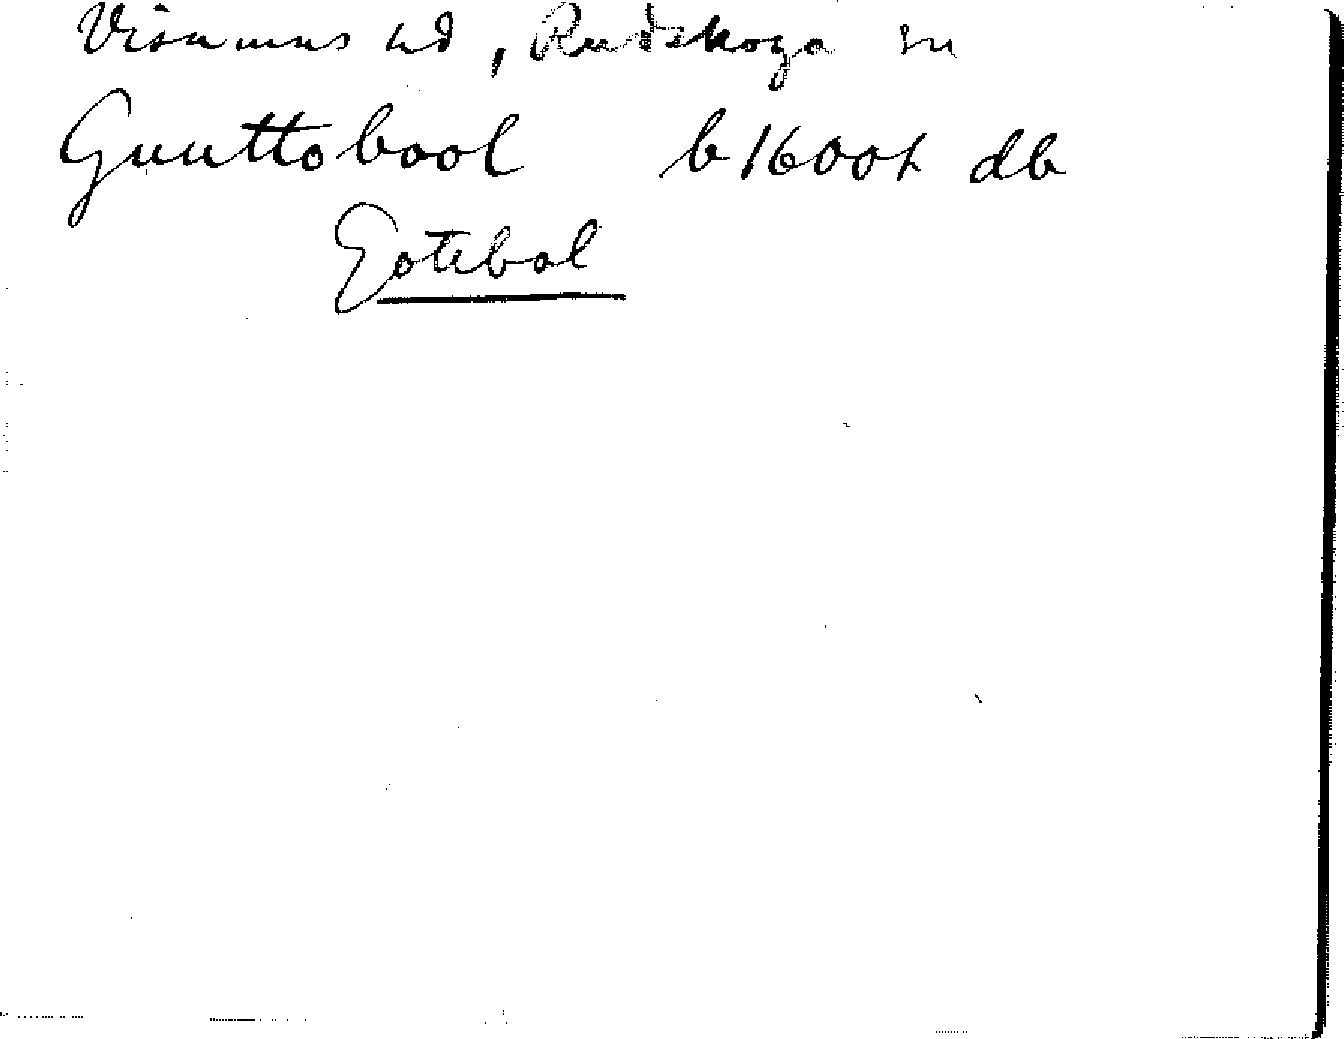 Visnums hd, Rudskoga sn
Guuttobool b1600t db
Gotebol